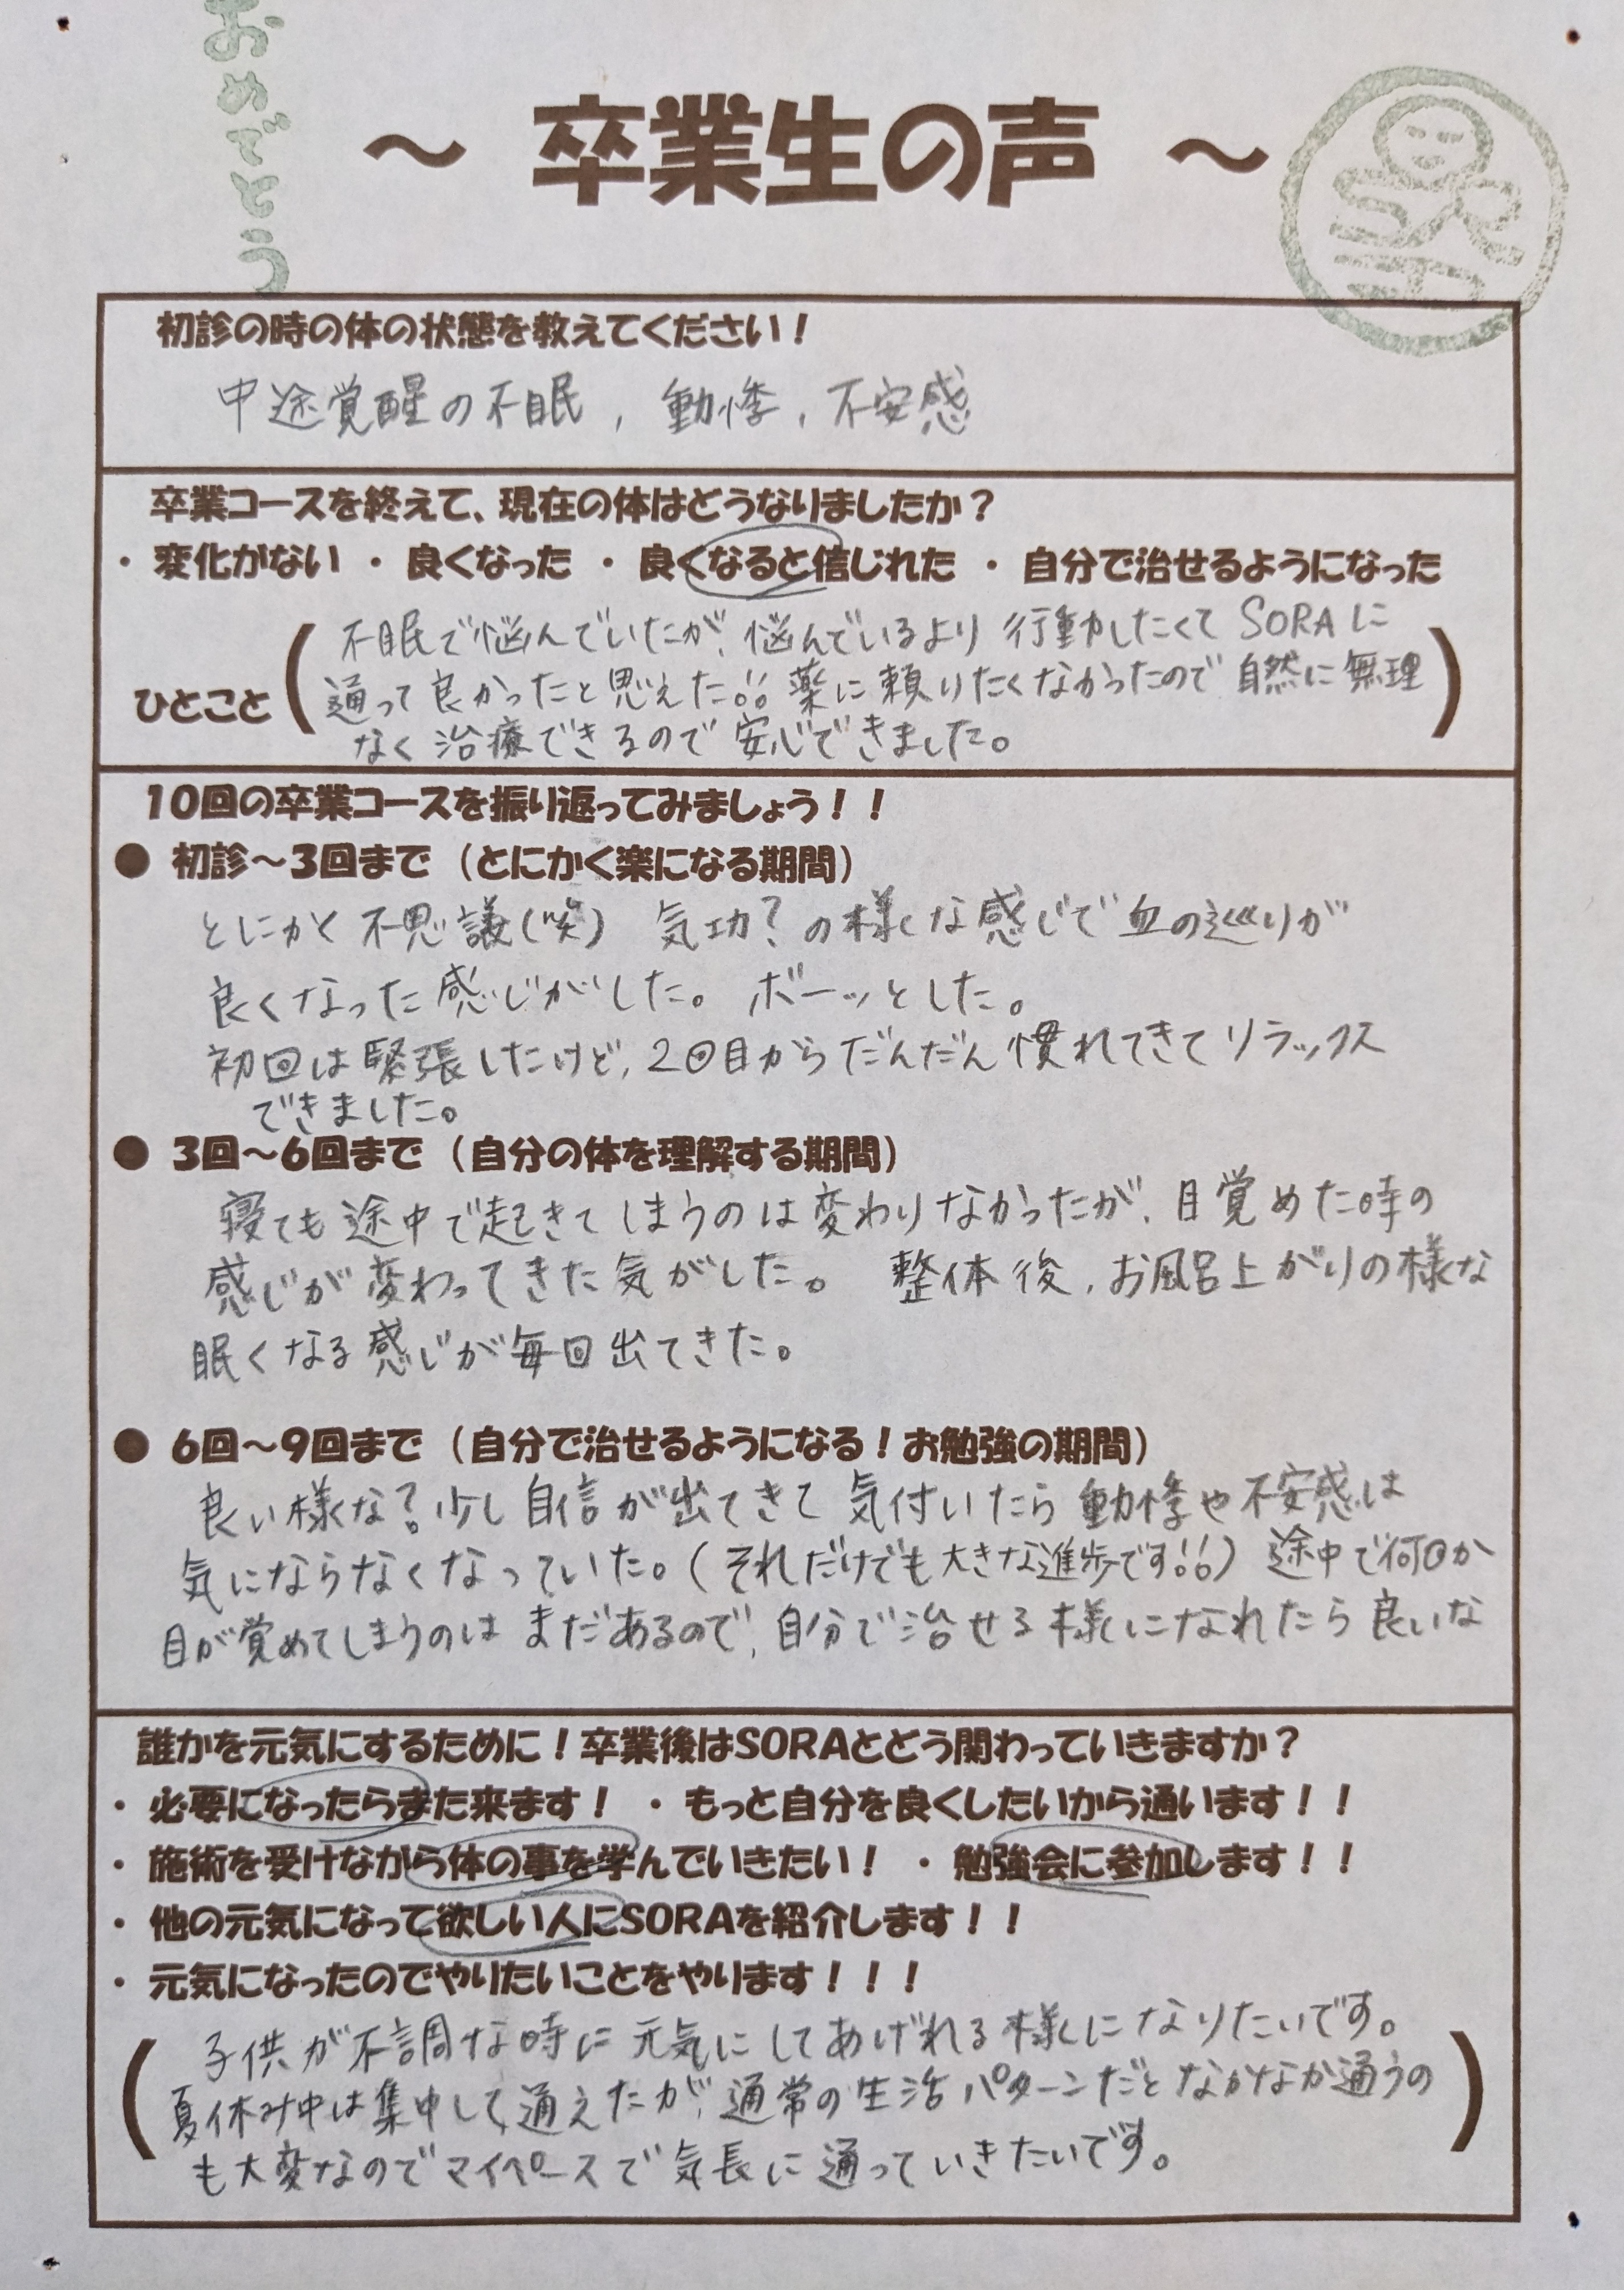 おめでとう
～ 卒業生の声 ～
初診の時の体の状態を教えてください！
中途覚醒の不眠, 動悸, 不安感
卒業コースを終えて、現在の体はどうなりましたか？
・ 変化がない ・ 良くなった ・ 良くなると信じれた ・ 自分で治せるようになった
ひとこと
不眠で悩んでいたが、悩んでいるより 行動したくて SORAに
通って良かったと思えた!! 薬に頼りたくなかったので 自然に無理
なく治療できるので安心できました。
10回の卒業コースを振り返ってみましょう！！
● 初診～3回まで（とにかく楽になる期間）
とにかく不思議(笑) 気功？の様な感じで血の巡りが
良くなった感じがした。 ボーッとした。
初回は緊張したけど, 2回目からだんだん慣れてきてリラックス
できました。
● 3回～6回まで（自分の体を理解する期間）
寝ても途中で起きてしまうのは変わりなかったが、目覚めた時の
感じが変わってきた気がした。 整体後, お風呂上がりの様な
眠くなる感じが毎回出てきた。
● 6回～9回まで（自分で治せるようになる！お勉強の期間）
良い様な？少し自信が出てきて気付いたら動悸や不安感は
気にならなくなっていた。(それだけでも大きな進歩です!!) 途中で何回か
目が覚めてしまうのはまだあるので, 自分で治せる様になれたら良いな
誰かを元気にするために！卒業後はSORAとどう関わっていきますか？
・ 必要になったらまた来ます！ ・ もっと自分を良くしたいから通います！！
・ 施術を受けながら体の事を学んでいきたい！ ・ 勉強会に参加します！！
・ 他の元気になって欲しい人にSORAを紹介します！！
・ 元気になったのでやりたいことをやります！！！
子供が不調な時に元気にしてあげれる様になりたいです。
夏休み中は集中して通えたが、通常の生活パターンだとなかなか通うの
も大変なのでマイペースで気長に通っていきたいです。